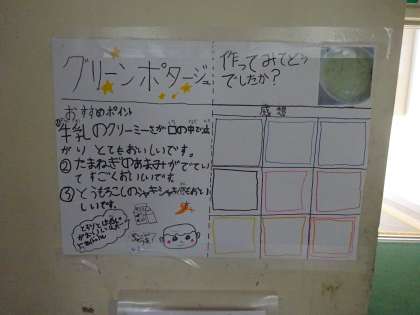 グリーンポタージュ
おすすめポイント
牛乳のクリーミーさが口の中で広
がり とてもおいしいです。
②たまねぎのあまみがでてい
てすごくおいしいです
③とうもろこしのシャキシャキがおい
しいです。
作ってみてどう
でしたか?
感想